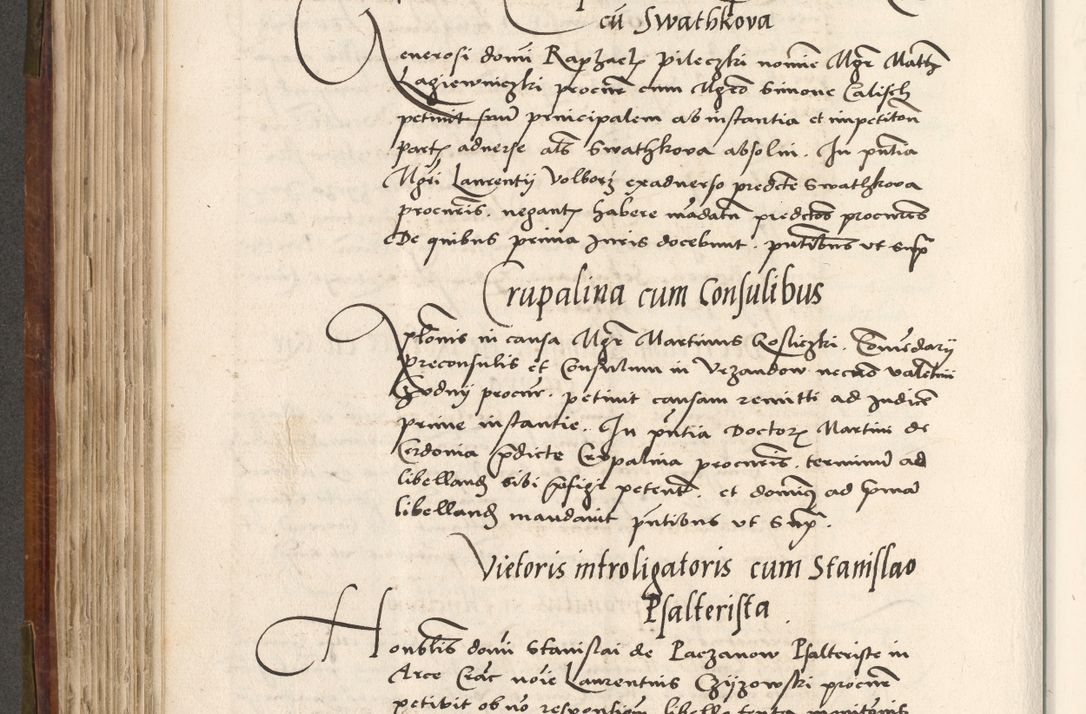 cū Swathkova
Generosi domī Raphaelꝫ Pileczki noīe Mgr̄ Mathꝫ
Lagiewniczki procur̄ cum Mgr̄o Simone Calisch
petiuit suū principalem ab instantia et impetitōn
partꝫ aduerse als̄ Swathkova absolui. In pn̄tia
Mgr̄i Laurentij Volborꝫ exaduerso predcte Swathkova
procur̄is. negantꝫ habere mādatū predctōs procur̄es
De quibus prima Juris docebunt. pn̄tibus vt supꝫ
Crupalina cum Consulibus
in causa Mgr̄ Martinus Rosliczki.
preconsulis et Consulum in Vrzandow necnō valentini
procur̄. petiuit causam remitti ad Judicē
prime instantie. In pn̄tia Doctorꝫ Martini de
Cerdonia p̄dicte Crupalina procur̄is. terminū ad
libellandꝫ sibi p̄figi petentꝫ. et domīꝫ ad p̄ma
libellandꝫ mandauit pn̄tibus vt supꝫ.
Vietoris introligatoris cum Stanislao
Psalterista.
Honblīs domī Stanislai de Paczanow Psalteriste in
Arce Crac̄ noīe Laurentius Czijzowski procur̄
petiuit ob nō responsiōem libello